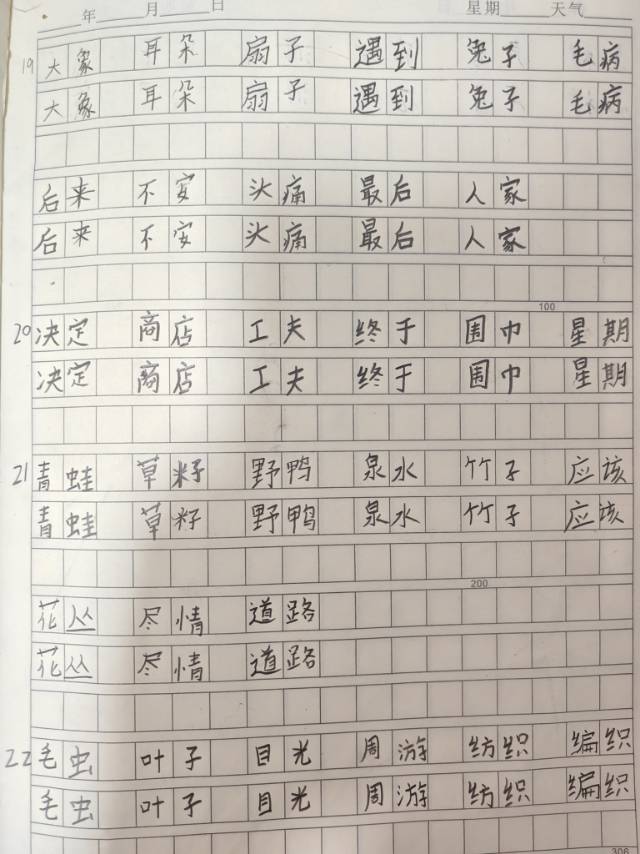 年 月 日 星期 天气
19 大象 耳朵 扇子 遇到 兔子 毛病
大象 耳朵 扇子 遇到 兔子 毛病
后来 不安 头痛 最后 人家
后来 不安 头痛 最后 人家
100
20 决定 商店 工夫 终于 围巾 星期
决定 商店 工夫 终于 围巾 星期
21 青蛙 草籽 野鸭 泉水 竹子 应该
青蛙 草籽 野鸭 泉水 竹子 应该
200
花丛 尽情 道路
花丛 尽情 道路
22 毛虫 叶子 目光 周游 纺织 编织
毛虫 叶子 目光 周游 纺织 编织
306